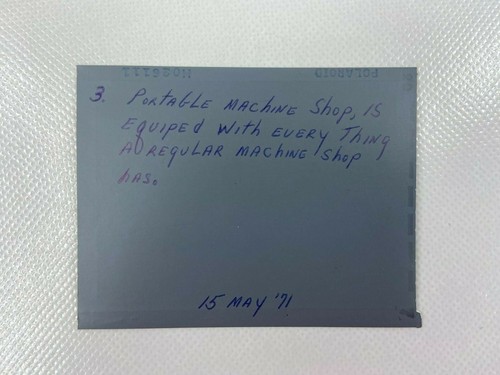 H036111 POLAROID
3. PORTABLE MACHINE Shop, IS
EQUIPED WITH EVERY THING
A REGULAR MACHINE Shop
hAS.
15 MAY '71